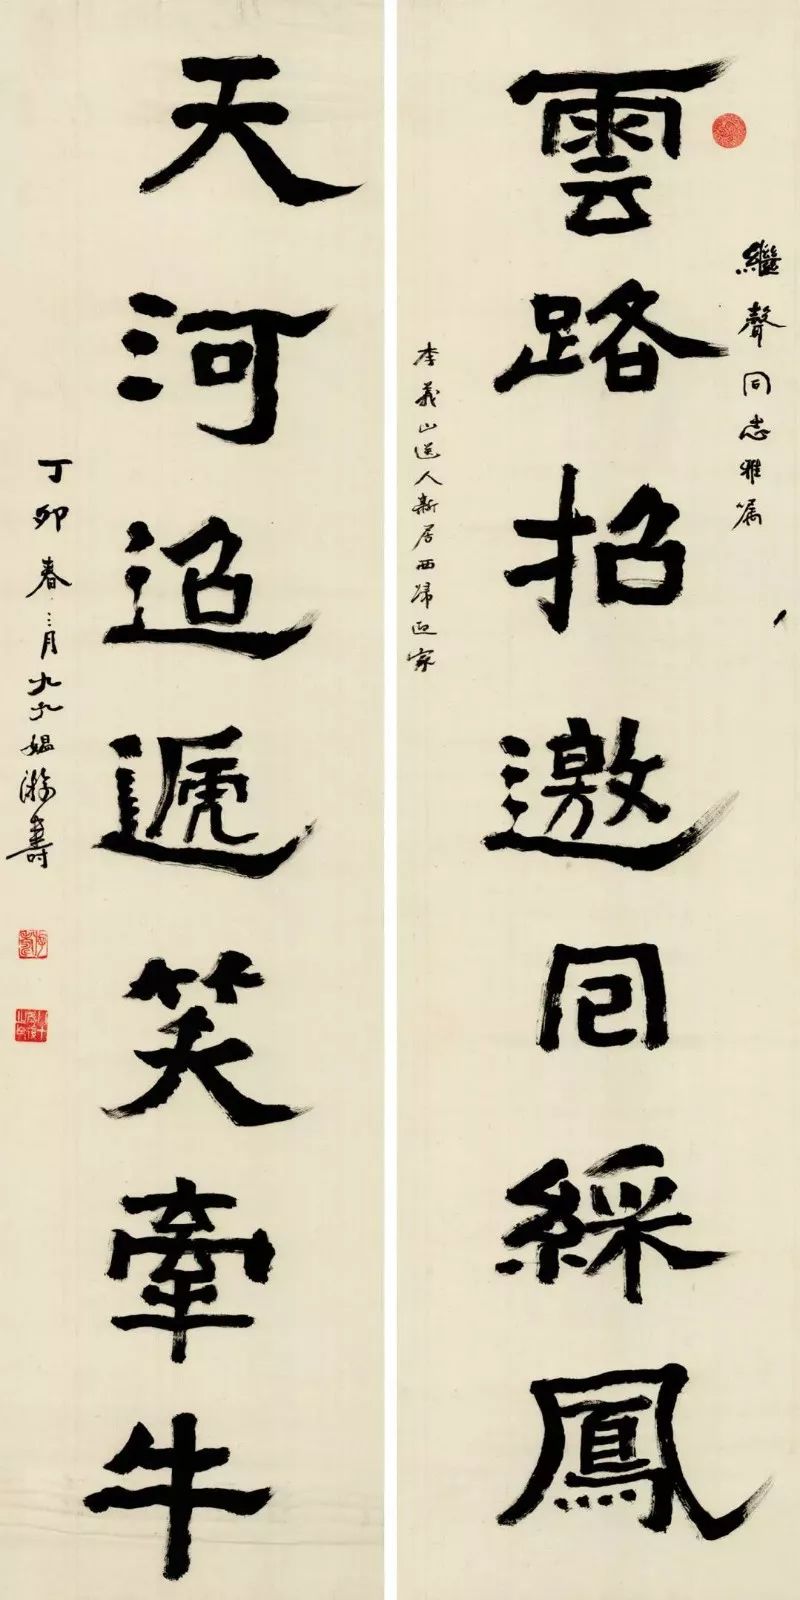 繼聲同志雅屬
雲路招邀囘綵鳳
李義山送人新居西歸迎家
天河迢遞笑牽牛
丁卯春三月九九媪游壽